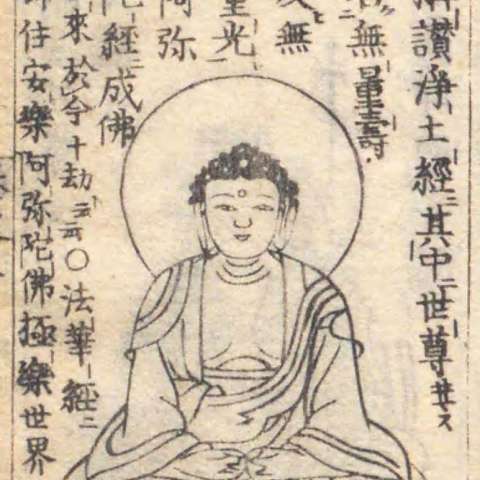 讚浄土經ニ其中世尊
無量壽
無
量光
阿弥
陀經ニ成佛
來於今十劫云云〇法華經ニ
住安樂阿弥陀佛極樂世界